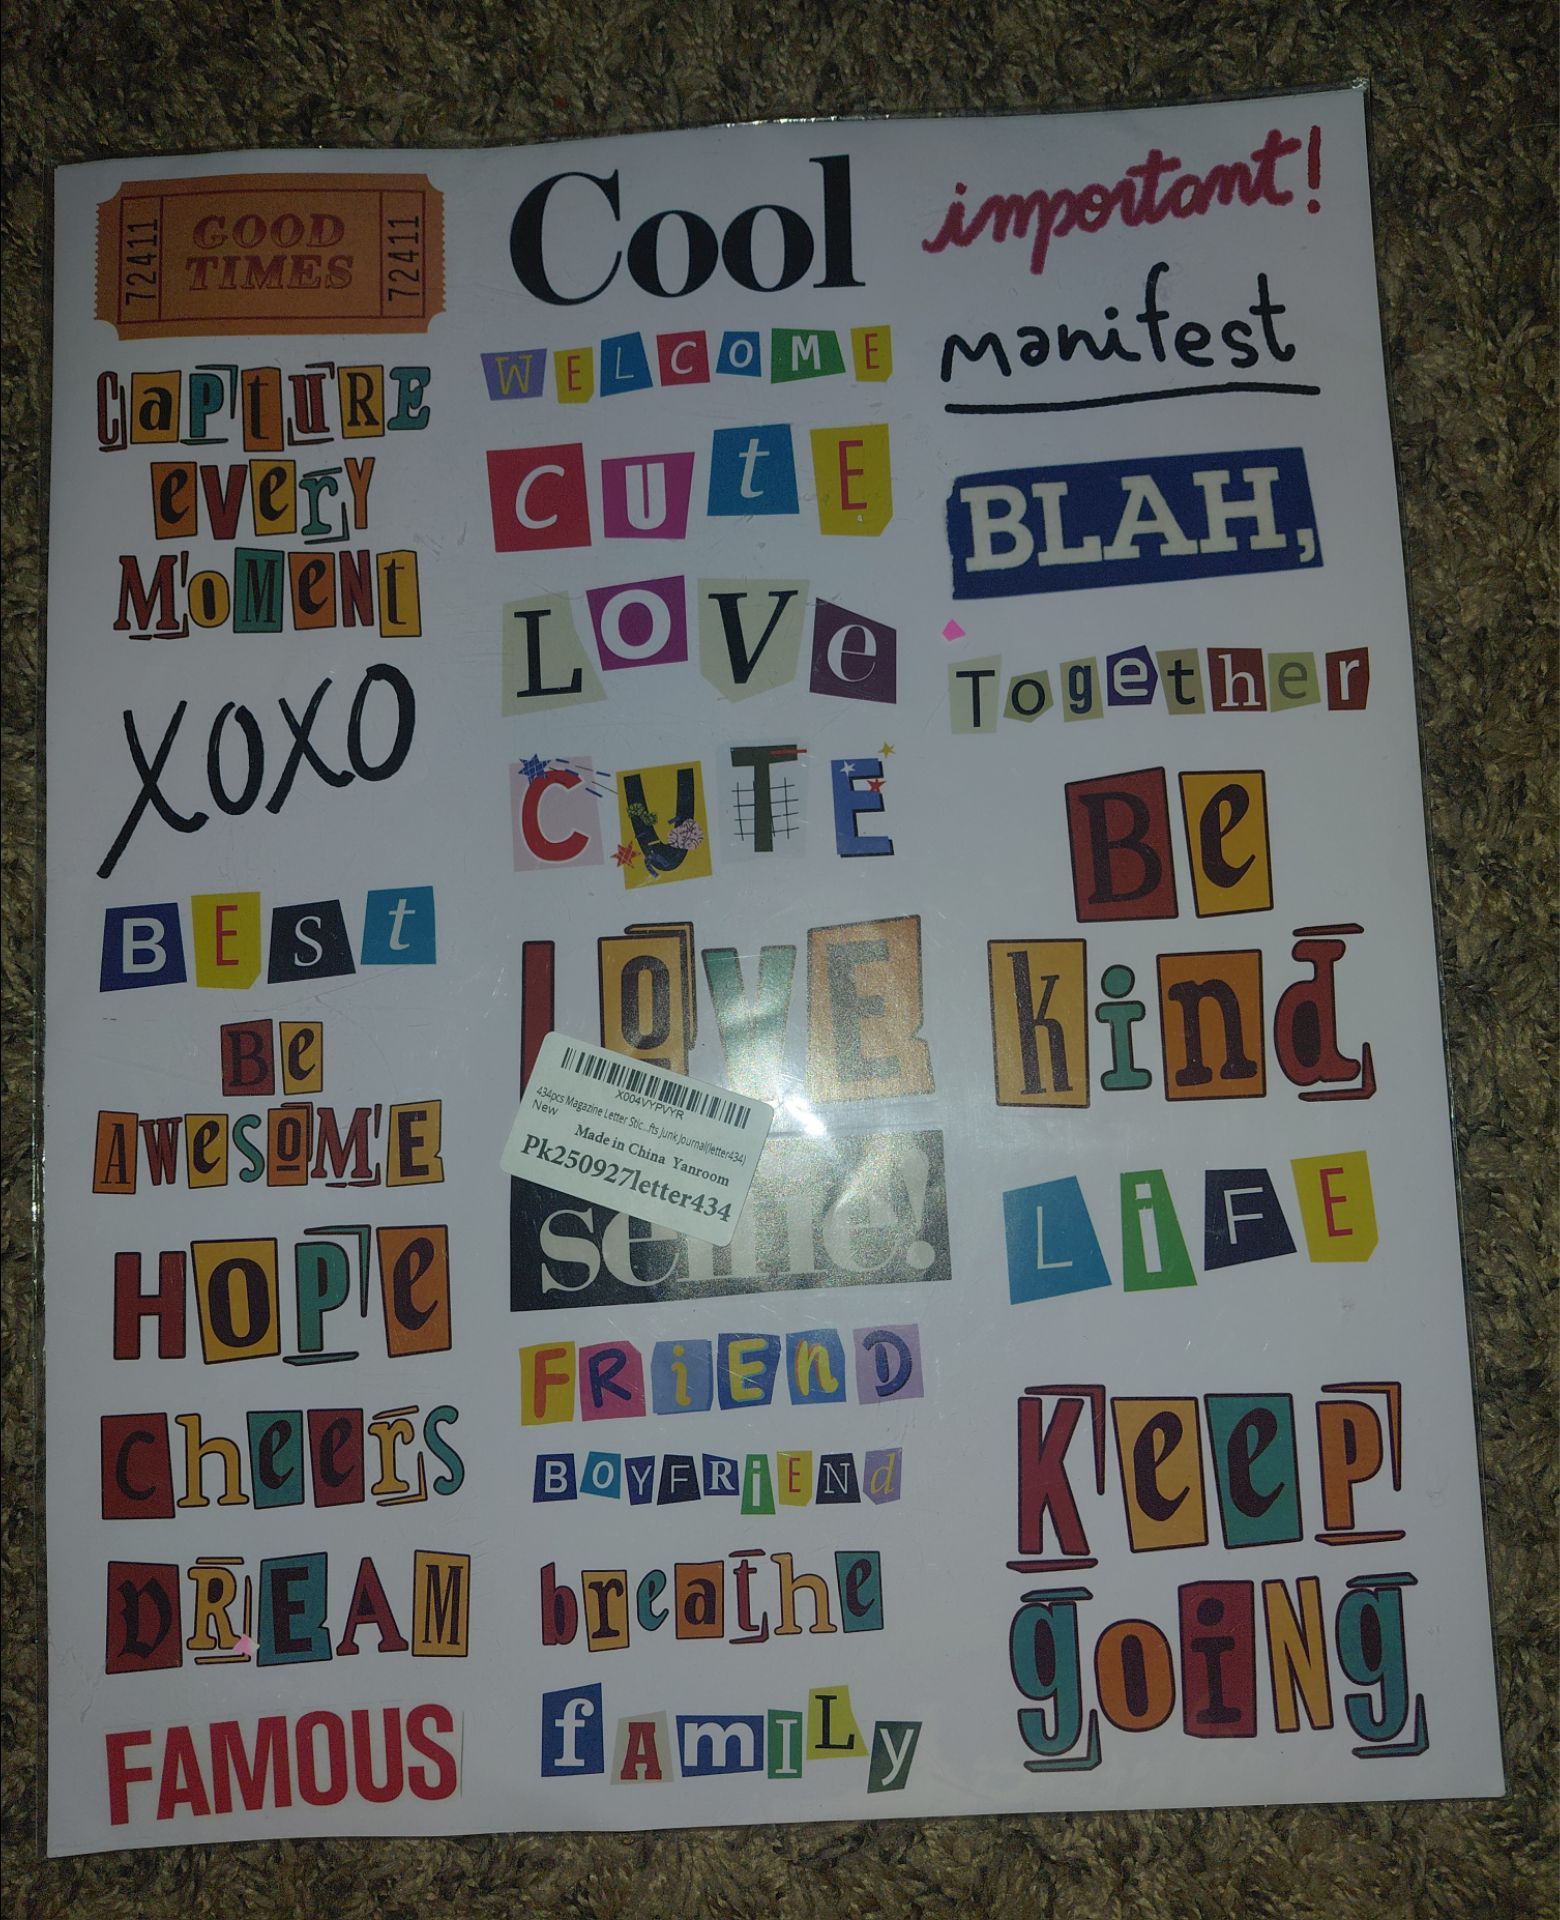 GOOD
TIMES
72411
72411
CaPtURE
everY
MoMeNt
XOXO
BESt
Be
AWeSOME
HOPe
CheerS
DREAM
FAMOUS
Cool
WELCOME
CUtE
LOVe
CUTE
LOVE
X004VYPVYR
434pcs Magazine Letter Stic...fts Junk Journal(letter434)
New
Made in China Yanroom
Pk250927letter434
FRiEnD
BOYFRiENd
breathe
fAmILy
important!
manifest
BLAH,
Together
Be
kind
LiFE
KeeP
goiNg